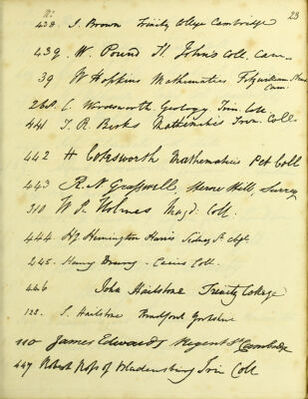 No.
23
438. J. Brown Trinity College Cambridge
439. W. Pound St. John's Coll. Cam.
39 W Hopkins Mathematics Fitzwilliam
Cam.
C. Wordsworth Geology Trin. Coll.
441 T. R. Birks Mathematics Trin. Coll.
442 H Cotesworth Mathematics Pet Coll
443 R. N Herne Hill, Surrey
310 W. P. Holmes Magd: Coll.
444 Hy Hemington Harris Sidney St
245. Henry Drury - Caius Coll.
446 John Hailstone Trinity College
122. S. Hailstone Bradford Yorkshire
110 James Edwards Regent St Cambridge
447 Robert Ross of Bladensburg Trin Coll